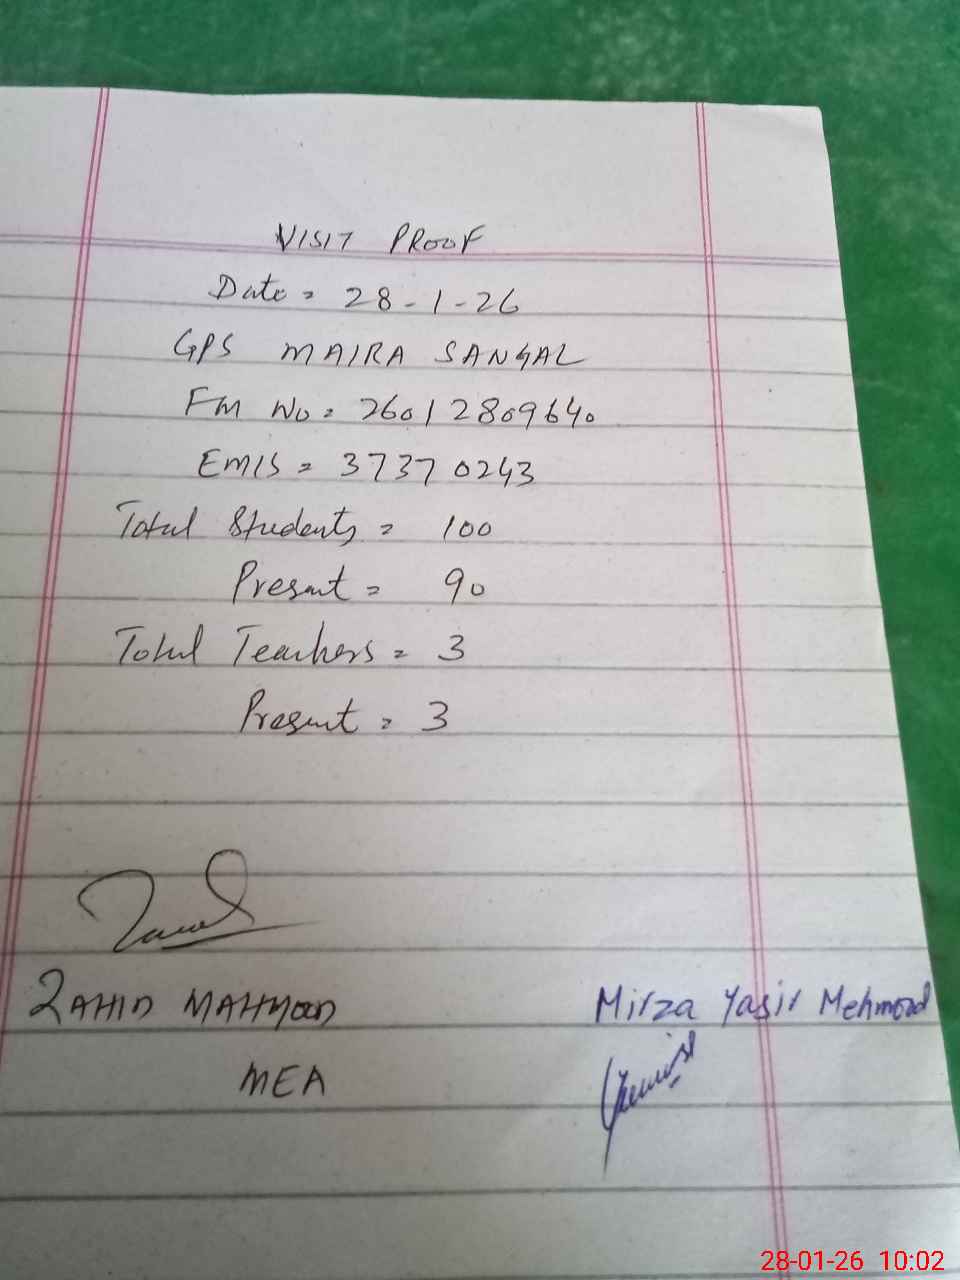 VISIT PROOF
Date = 28-1-26
GPS MAIRA SANGAL
FM No = 26012809640
EMIS = 37370243
Total Students = 100
Present = 90
Total Teachers = 3
Present = 3
ZAHID MAHMOOD
Mirza Yasir Mehmood
MEA
28-01-26 10:02